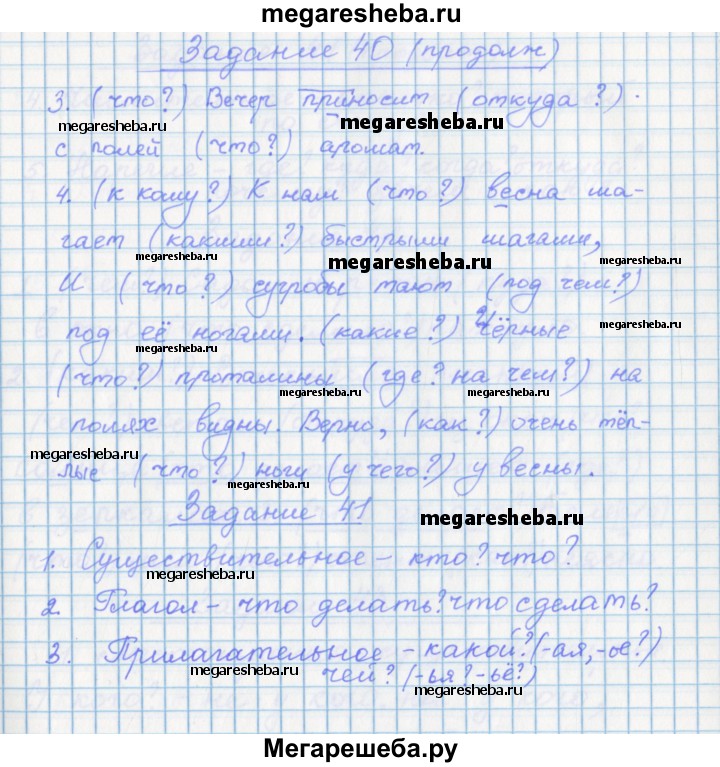 megaresheba.ru
Задание 40 (продолж)
3. (что?) Вечер приносит (откуда?)
megaresheba.ru
megaresheba.ru
с полей (что?) аромат.
4. (к кому?) К нам (что?) весна ша-
гает (какими?) быстрыми шагами,
megaresheba.ru
megaresheba.ru
megaresheba.ru
И (что?) сугробы тают (под чем?)
под её ногами. (какие?) Чёрные
megaresheba.ru
megaresheba.ru
(что?) проталины (где? на чем?) на
megaresheba.ru
megaresheba.ru
полях видны. Верно, (как?) очень тёп-
megaresheba.ru
лые (что?) ноги (у чего?) у весны.
megaresheba.ru
Задание 41
megaresheba.ru
1. Существительное – кто? что?
megaresheba.ru
2. Глагол – что делать? что сделать?
megaresheba.ru
3. Прилагательное – какой? (-ая, -ое?)
чей? (-ья? -ьё?)
megaresheba.ru
Мегарешеба.ру